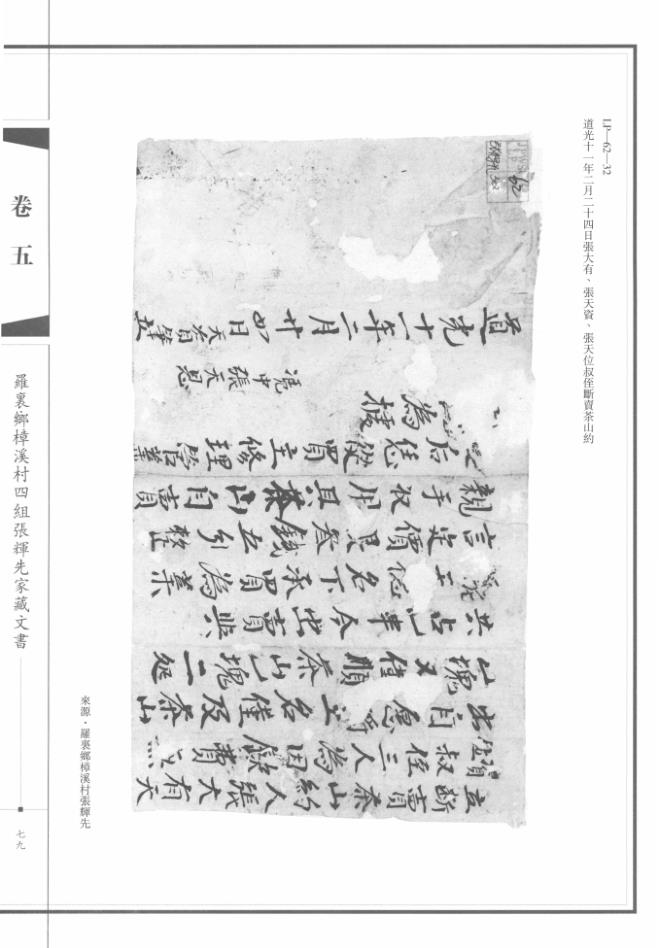 LP—62—32
道光十一年二月二十四日張大有、張天資、張天位叔侄斷賣茶山約
立斷賣茶山約人張大有天
資位叔侄三人為因缺費無
出自愿將土名崔及茶山
山塊又值順茶山一塊二處
共占一半今出賣與
名下承買為業
言定價艮叁錢五分整
親手收用其茶山自賣
之后恁從買主修理管業
為據
憑中張天恩
道光十一年二月廿四日天有筆立
卷五
羅裏鄉樟溪村四組張輝先家藏文書
七九
來源·羅裏鄉樟溪村張輝先